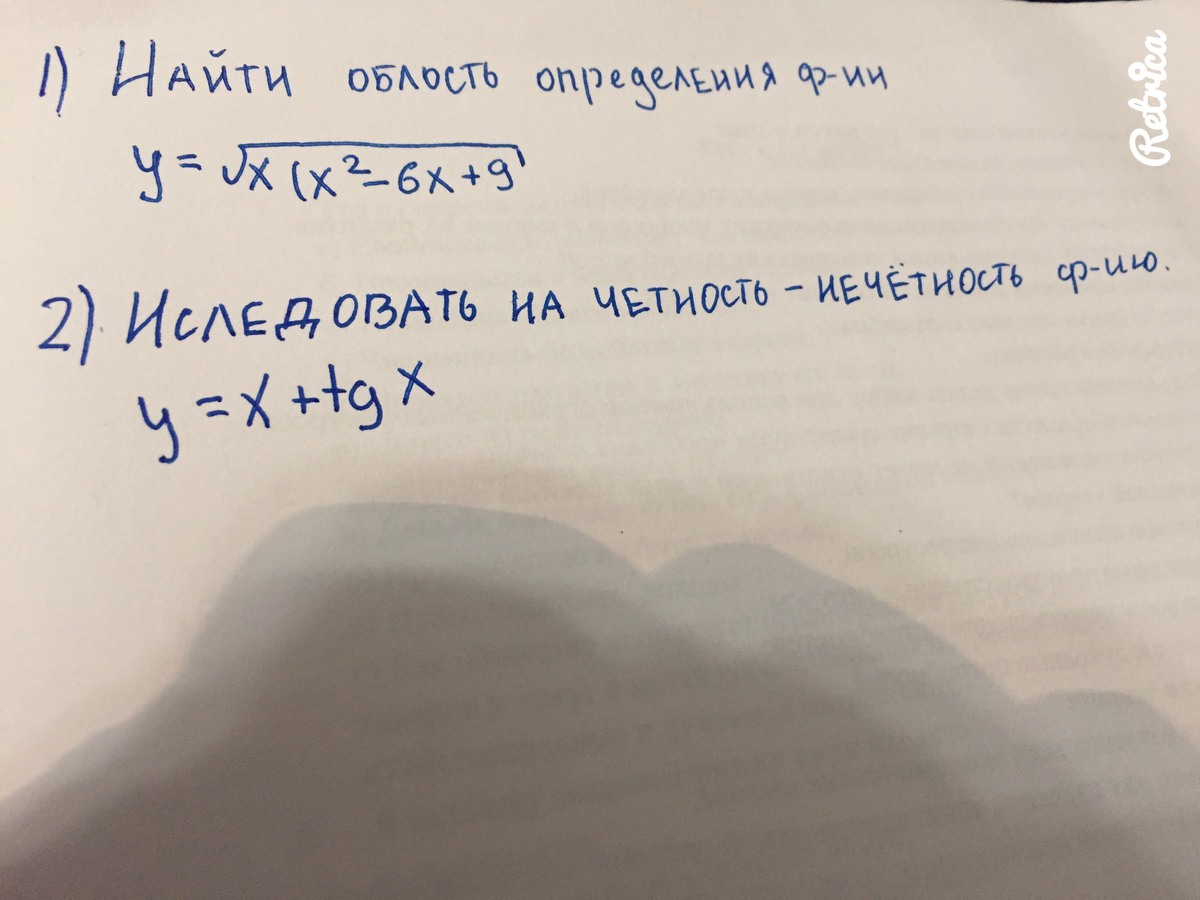 1) Найти область определения ф-ии
y = √x (x² - 6x + 9
2) Иследовать на четность - нечётность ф-ию.
y = x + tg x
Retrica